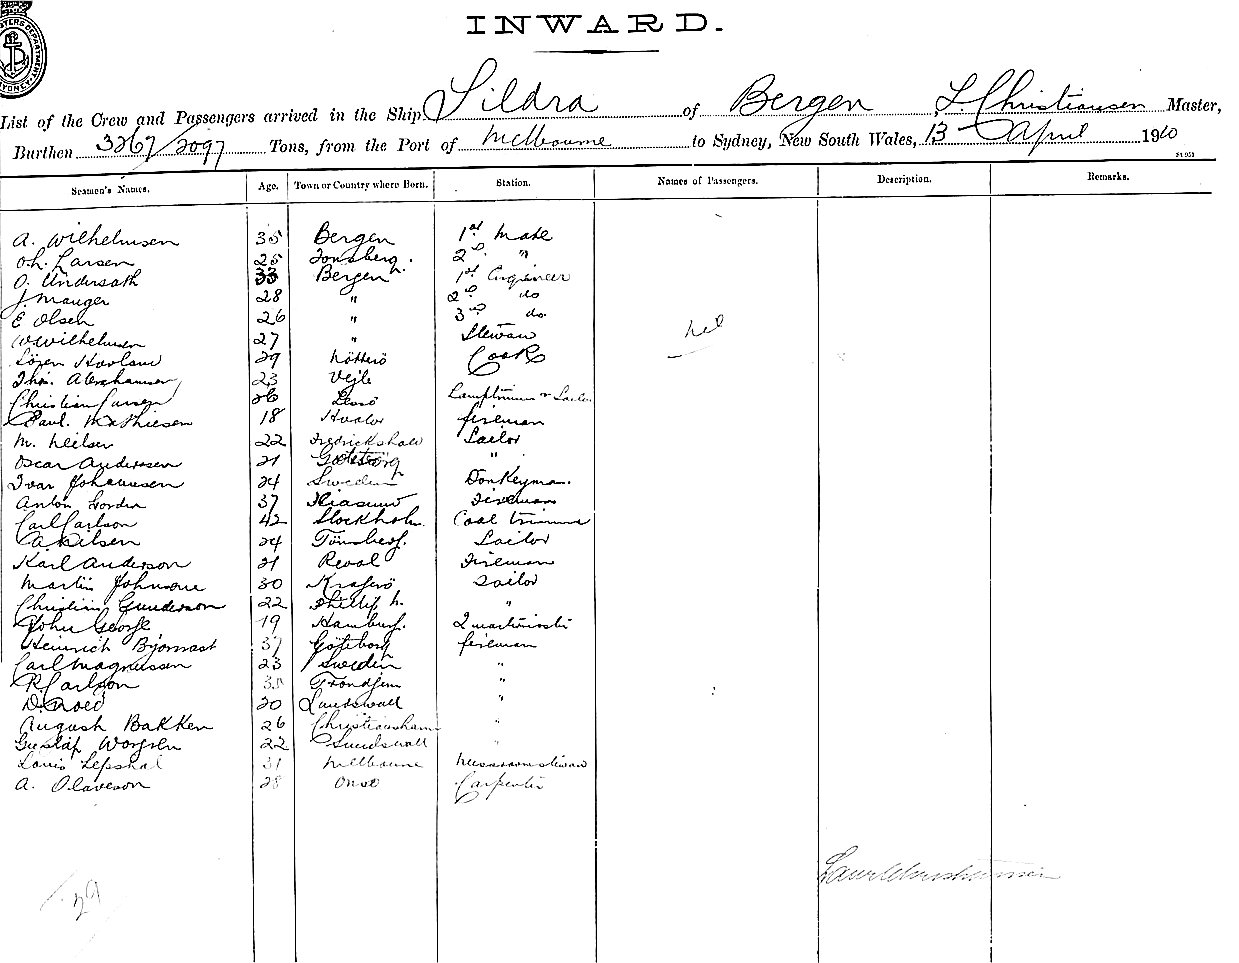 INWARD.
List of the Crew and Passengers arrived in the Ship Sildra of Bergen, L. Christiansen Master,
Burthen 3267/2097 Tons, from the Port of Melbourne to Sydney, New South Wales, 13 April 1910
Seamen's Names. Age. Town or Country where Born. Station. Names of Passengers. Description. Remarks.
A. Wilhelmsen 35 Bergen 1st Mate
Oh. Larsen 25 Tonsberg. 2nd "
O. Undersath 33 Bergen 1st Engineer
J. Mauger 28 " 2nd do
E Olsen 26 " 3rd do
W. Wilhelmsen 27 " Steward
Sören Hovland 29 Nötterö Cook
Thos. Abrahamsen 23 Vejle
Christian Larsen 26 Lessö Lamptrimmer & Sailor
Paul. Mathiesen 18 fireman
M. Neilsen 22 Fredrickshald Sailor
Oscar Anderssen 21 Göteborg "
Ivar Johannsen 24 Sweden Donkeyman.
Anton 37 Fireman
Carl Carlson 42 Stockholm. Coal trimmer
A. Nilsen 24 Tönsberg. Sailor
Karl Anderson 21 Reval Fireman
Martin Johnsone 30 Kragerö Sailor
Christian Gunderson 22 "
John George 19 Hamburg.
Heinrich Björnast 37 Göteborg fireman
Carl Magnussen 23 Sweden "
R Carlson Trondjem "
D. 20 Sundswall "
August Bakken 26 Christiansham "
Gustaf 22 Sundswall "
Louis 31 Melbourne Messroomsteward
A. Olaveson 28 Onsö Carpenter
nil
29